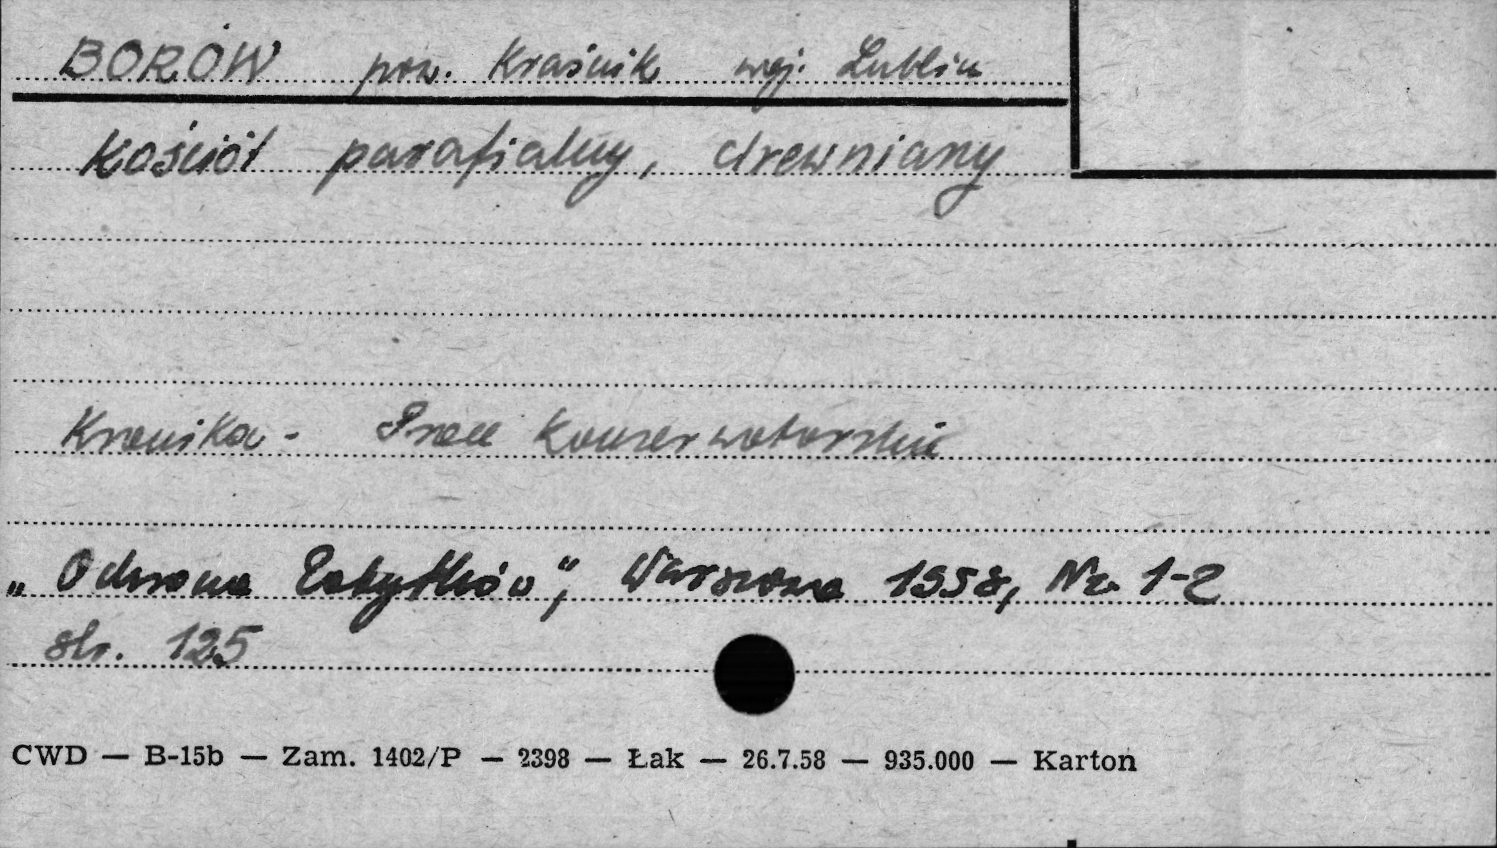 BORÓW pow. Kraśnik woj. Lublin
Kościół parafialny, drewniany
Kronika - Prace konserwatorskie
„Ochrona Zabytków”, Warszawa 1958, Nr. 1-2
str. 125
CWD — B-15b — Zam. 1402/P — 2398 — Łak — 26.7.58 — 935.000 — Karton